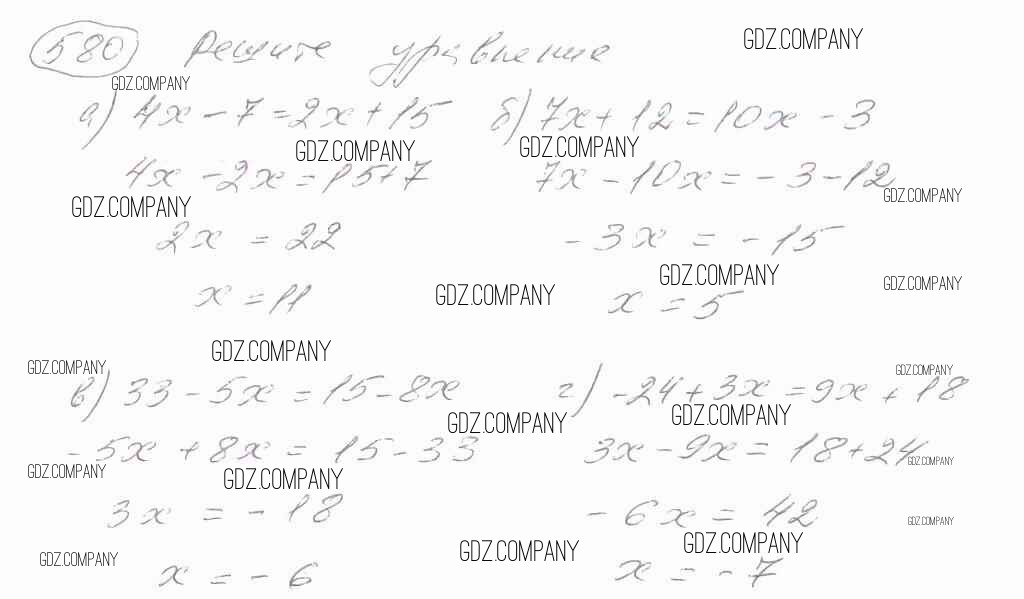 580 Решите уравнение GDZ.COMPANY
GDZ.COMPANY
а) 4x - 7 = 2x + 15 б) 7x + 12 = 10x - 3
GDZ.COMPANY GDZ.COMPANY
4x - 2x = 15 + 7 7x - 10x = - 3 - 12
GDZ.COMPANY GDZ.COMPANY
2x = 22 - 3x = - 15
GDZ.COMPANY GDZ.COMPANY
x = 11 GDZ.COMPANY x = 5
GDZ.COMPANY GDZ.COMPANY GDZ.COMPANY
в) 33 - 5x = 15 - 8x г) -24 + 3x = 9x + 18
GDZ.COMPANY GDZ.COMPANY
- 5x + 8x = 15 - 33 3x - 9x = 18 + 24
GDZ.COMPANY GDZ.COMPANY GDZ.COMPANY
3x = - 18 - 6x = 42 GDZ.COMPANY
GDZ.COMPANY GDZ.COMPANY GDZ.COMPANY
x = - 6 x = - 7